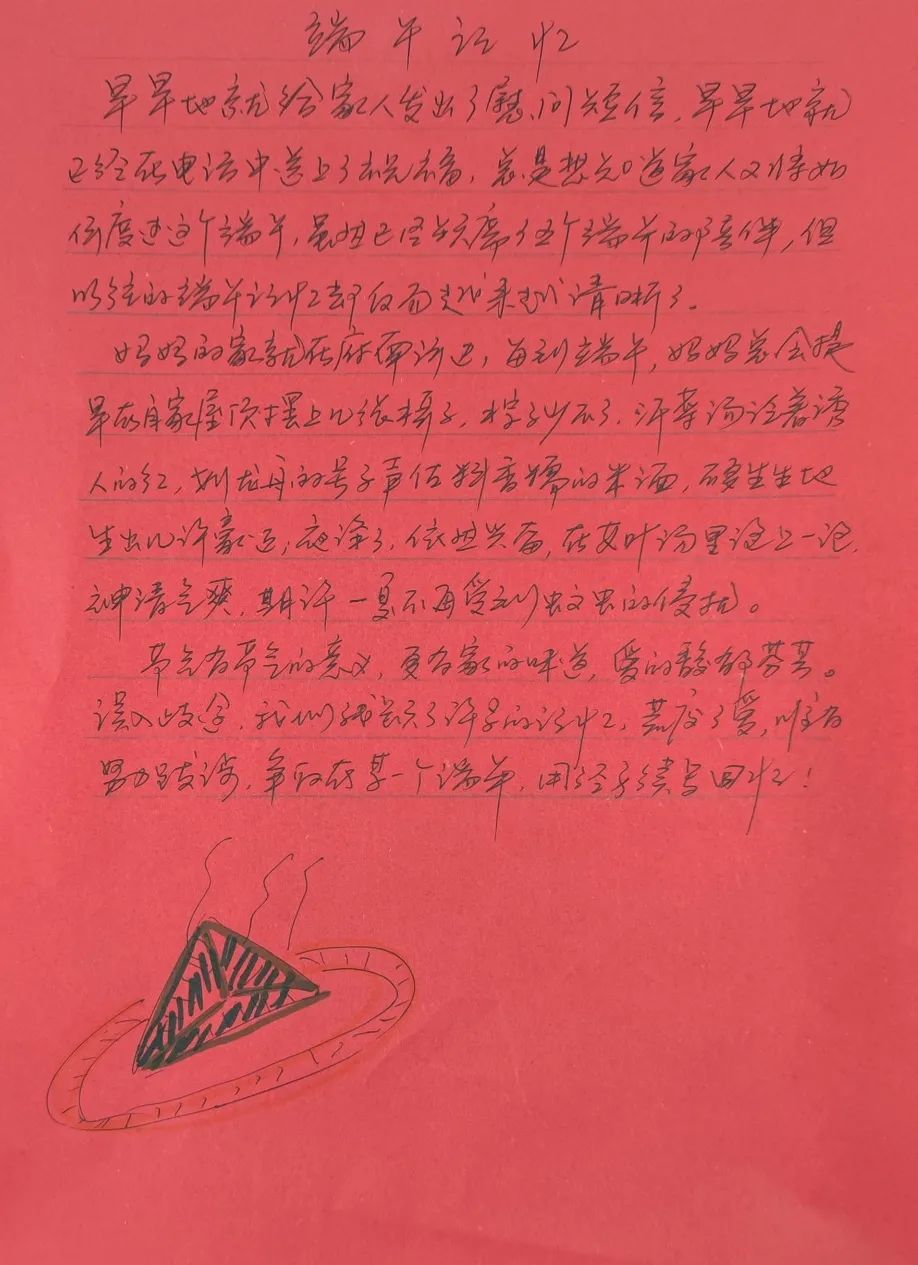 端午记忆
早早地就给家人发出了慰问短信，早早地就
已经在电话中送上了祝福，总是想知道家人又将如
何度过这个端午，虽然已经缺席了五个端午的陪伴，但
以往的端午记忆却反而越来越清晰了。
妈妈的家就在府河边，每到端午，妈妈总会提
早在自家屋顶摆上几张桌子，粽子少不了，汗菜汤泛着诱
人的红，划龙舟的号子声佐料香糯的米酒，硬生生地
生出几许豪迈；夜深了，依然兴奋，在艾叶汤里泡上一泡，
神清气爽，期许一夏不再受到蚊虫的侵扰。
节气有节气的意义，更有家的味道，爱的馥郁芬芳。
误入歧途，我们缺失了许多的记忆，荒废了爱，唯有
努力跋涉，争取在某一个端午，用粽子续写回忆！